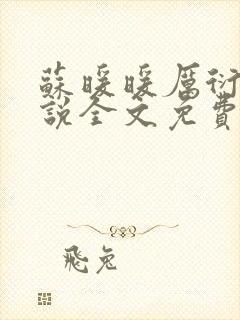 蘇暖暖厲衍
說全文免費
飛兔